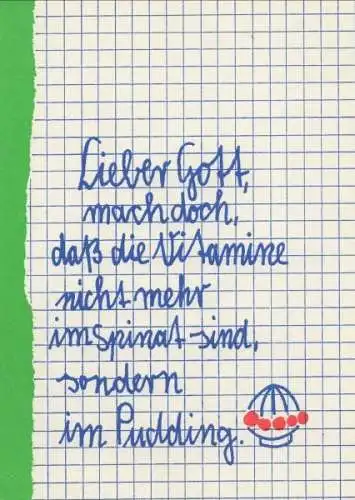 Lieber Gott,
mach doch,
daß die Vitamine
nicht mehr
im Spinat sind,
sondern
im Pudding.